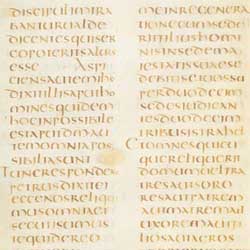 discipulimira
banturualde
dicentesquiser
gopoteritsaluus
esse Aspi
ciensautemihs
dixitillisapudho
minesquidem
hocinpossibile
estapuddmau
temomniapos
sibiliasunt
Tuncresponde
petrusdixitei
eccenosreliqui
musomniaet
secutisumus
tequidergo
meinregenera
tionecumsede
ritfiliushomi
nisinsedema
iestatissuaese
debitisetuossu
perduodecim
sedesiudican
tesduodecim
tribusistrahel
Etomnesqui
quereliquerit
domumuelfra
tresautsoro
resautpatrem
autmatremaut
uxoremautfi
liosautagros